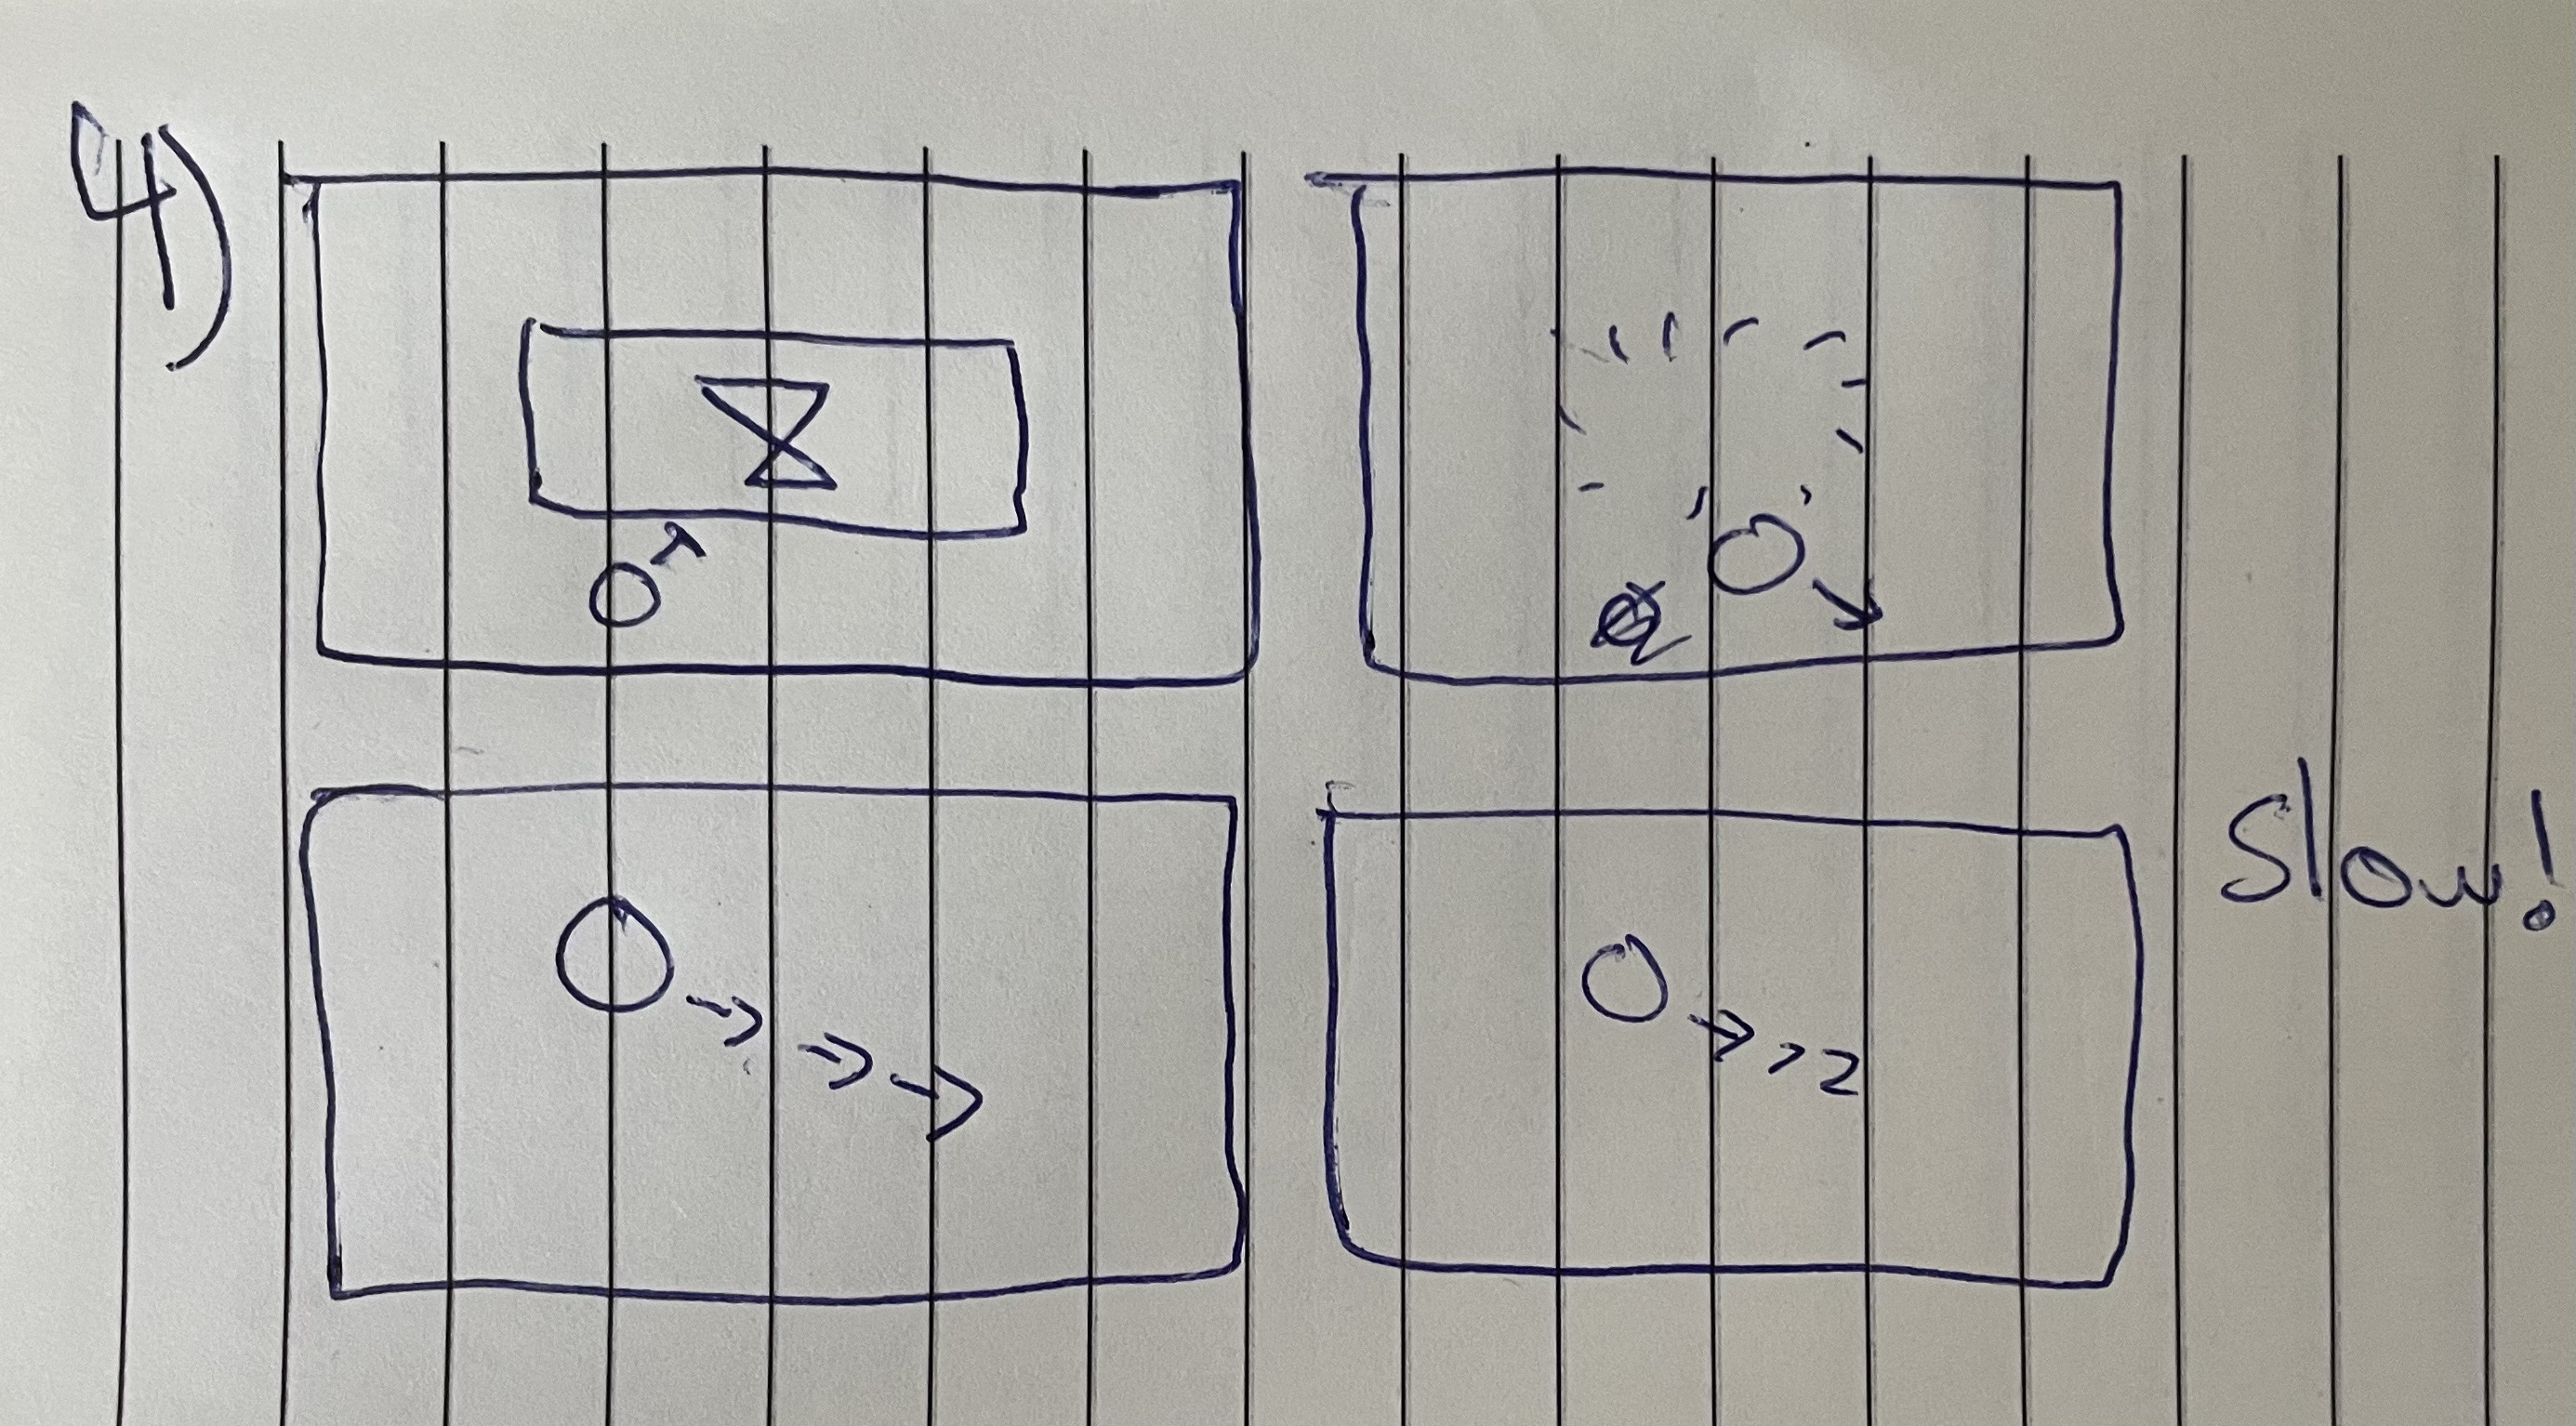 4)
Slow!